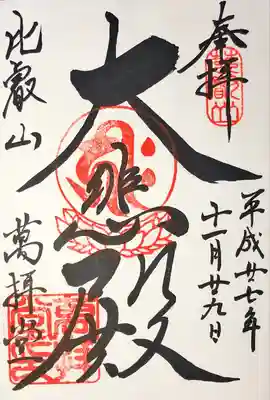 奉拝
平成廿七年
十一月廿九日
大悲殿
比叡山
萬拝堂